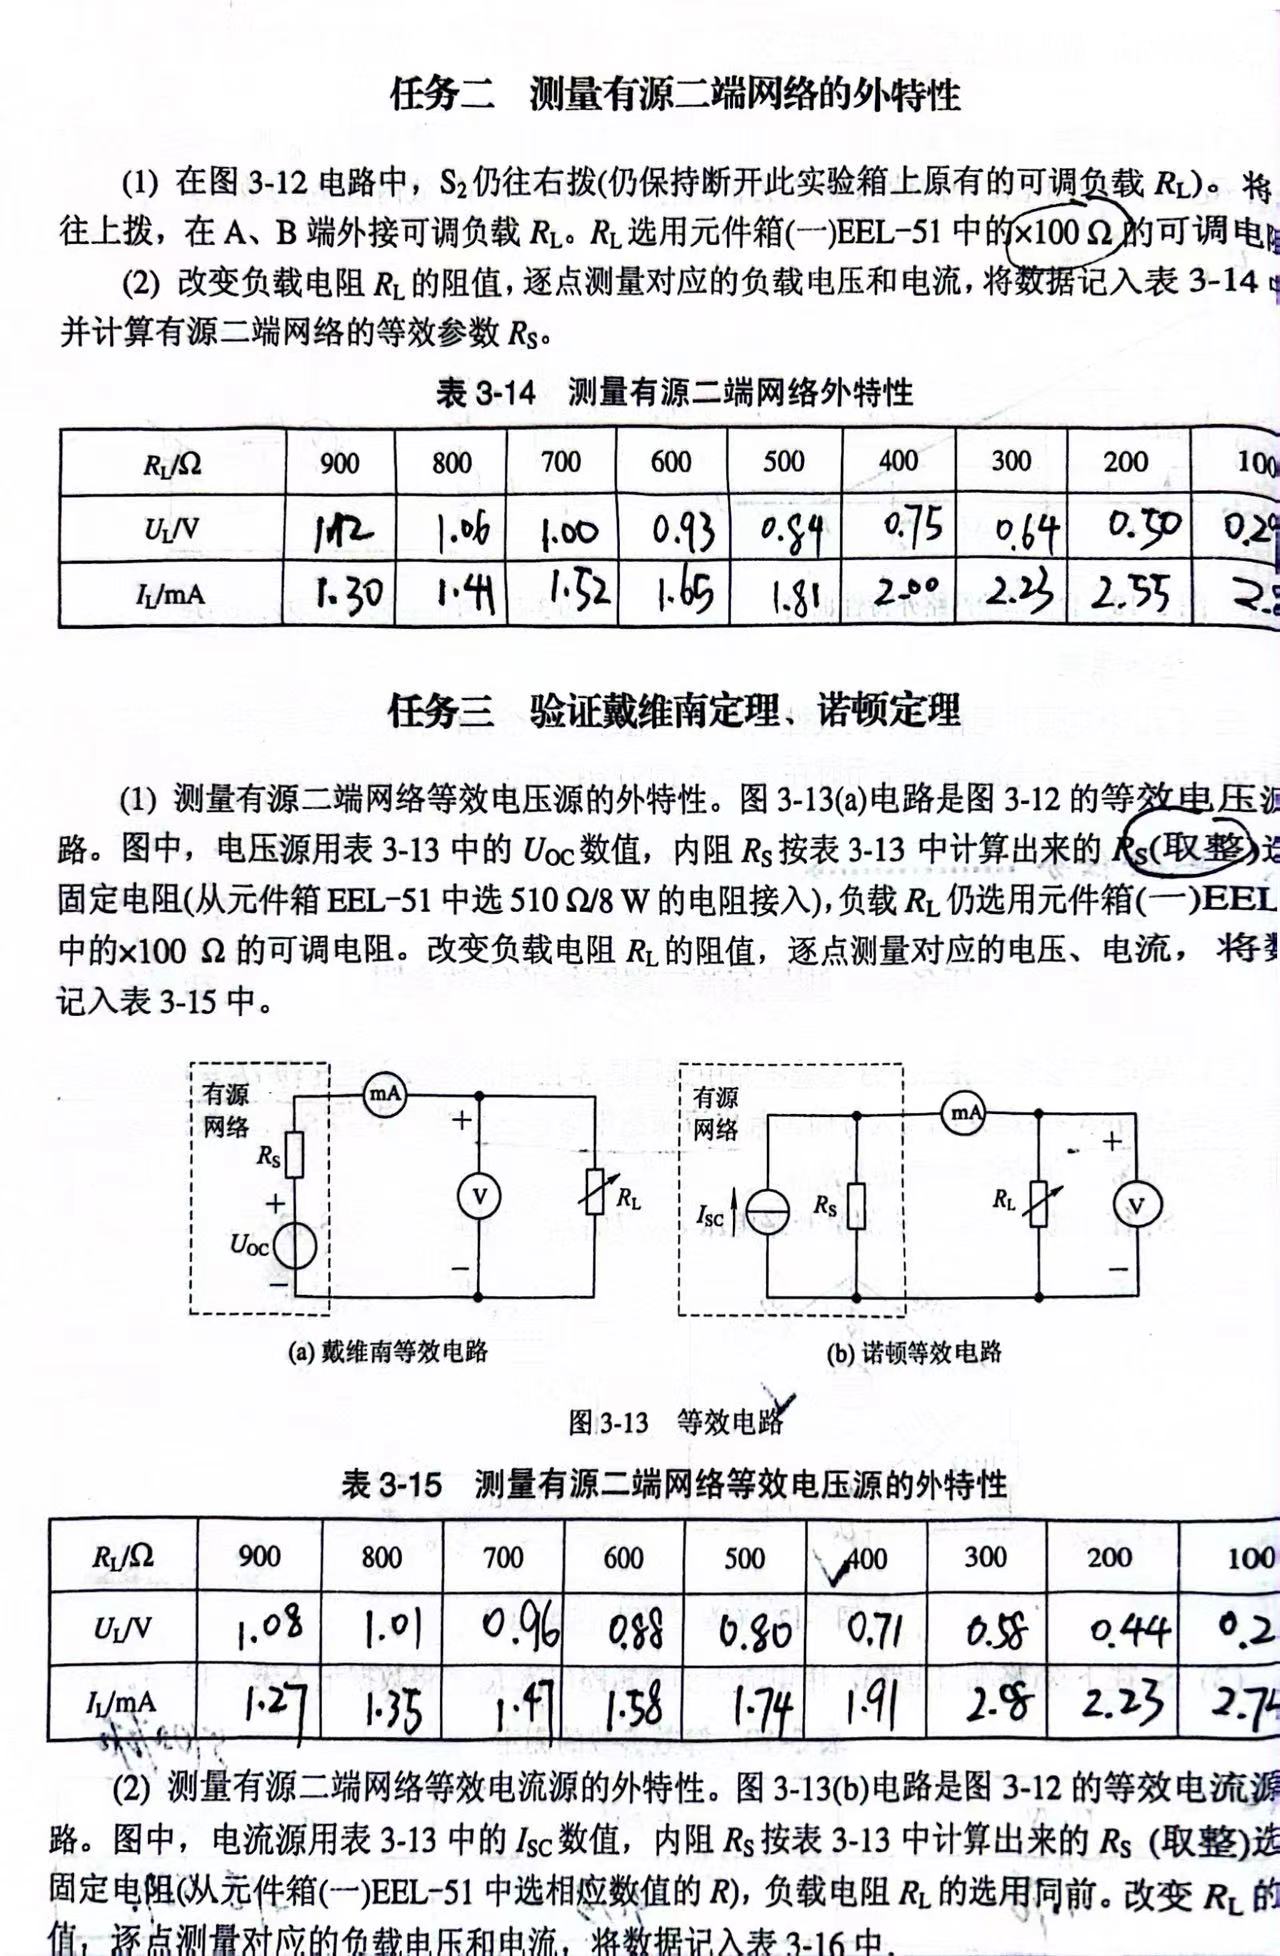 任务二 测量有源二端网络的外特性
(1) 在图 3-12 电路中，S₂仍往右拨(仍保持断开此实验箱上原有的可调负载 RL)。将
往上拨，在 A、B 端外接可调负载 RL。RL 选用元件箱(一)EEL-51 中的×100 Ω 的可调电阻
(2) 改变负载电阻 RL 的阻值，逐点测量对应的负载电压和电流，将数据记入表 3-14
并计算有源二端网络的等效参数 RS。
表 3-14 测量有源二端网络外特性
RL/Ω 900 800 700 600 500 400 300 200 100
UL/V 1.12 1.06 1.00 0.93 0.84 0.75 0.64 0.50
IL/mA 1.30 1.41 1.52 1.65 1.81 2.00 2.23 2.55
任务三 验证戴维南定理、诺顿定理
(1) 测量有源二端网络等效电压源的外特性。图 3-13(a)电路是图 3-12 的等效电压源
路。图中，电压源用表 3-13 中的 UOC 数值，内阻 RS 按表 3-13 中计算出来的 RS(取整)选
固定电阻(从元件箱 EEL-51 中选 510 Ω/8 W 的电阻接入)，负载 RL 仍选用元件箱(一)EEL
中的×100 Ω 的可调电阻。改变负载电阻 RL 的阻值，逐点测量对应的电压、电流，将
记入表 3-15 中。
有源
网络
RS
+
UOC
−
mA
+
V
−
RL
有源
网络
ISC
RS
mA
RL
+
V
−
(a) 戴维南等效电路
(b) 诺顿等效电路
图 3-13 等效电路
表 3-15 测量有源二端网络等效电压源的外特性
RL/Ω 900 800 700 600 500 400 300 200 100
UL/V 1.08 1.01 0.96 0.88 0.80 0.71 0.58 0.44
IL/mA 1.27 1.35 1.47 1.58 1.74 1.91 2.08 2.23
(2) 测量有源二端网络等效电流源的外特性。图 3-13(b)电路是图 3-12 的等效电流源
路。图中，电流源用表 3-13 中的 ISC 数值，内阻 RS 按表 3-13 中计算出来的 RS (取整)选
固定电阻(从元件箱(一)EEL-51 中选相应数值的 R)，负载电阻 RL 的选用同前。改变 RL 的
值，逐点测量对应的负载电压和电流，将数据记入表 3-16 中.